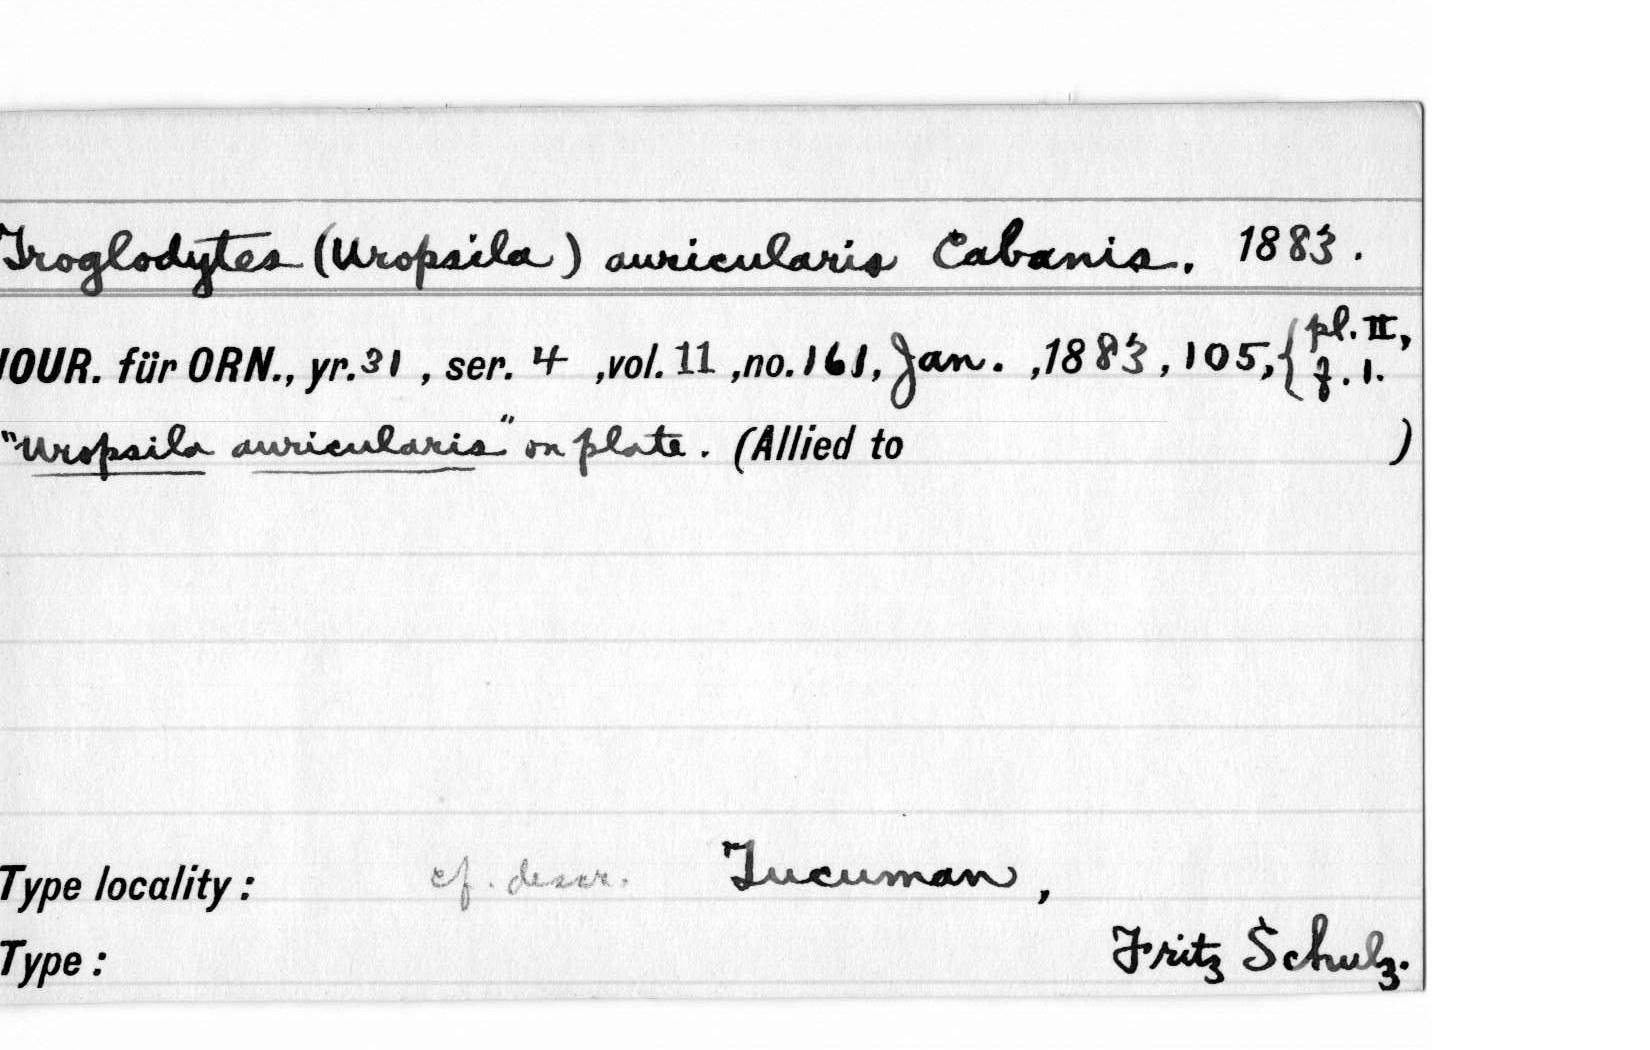 Troglodytes (Uropsila) auricularis Cabanis. 1883.
JOUR. für ORN., yr. 31, ser. 4, vol. 11, no. 161, Jan., 1883, 105, { pl. II, f. 1.
"Uropsila auricularis" on plate. (Allied to )
Type locality: cf. descr. Tucuman,
Fritz Schulz.
Type: